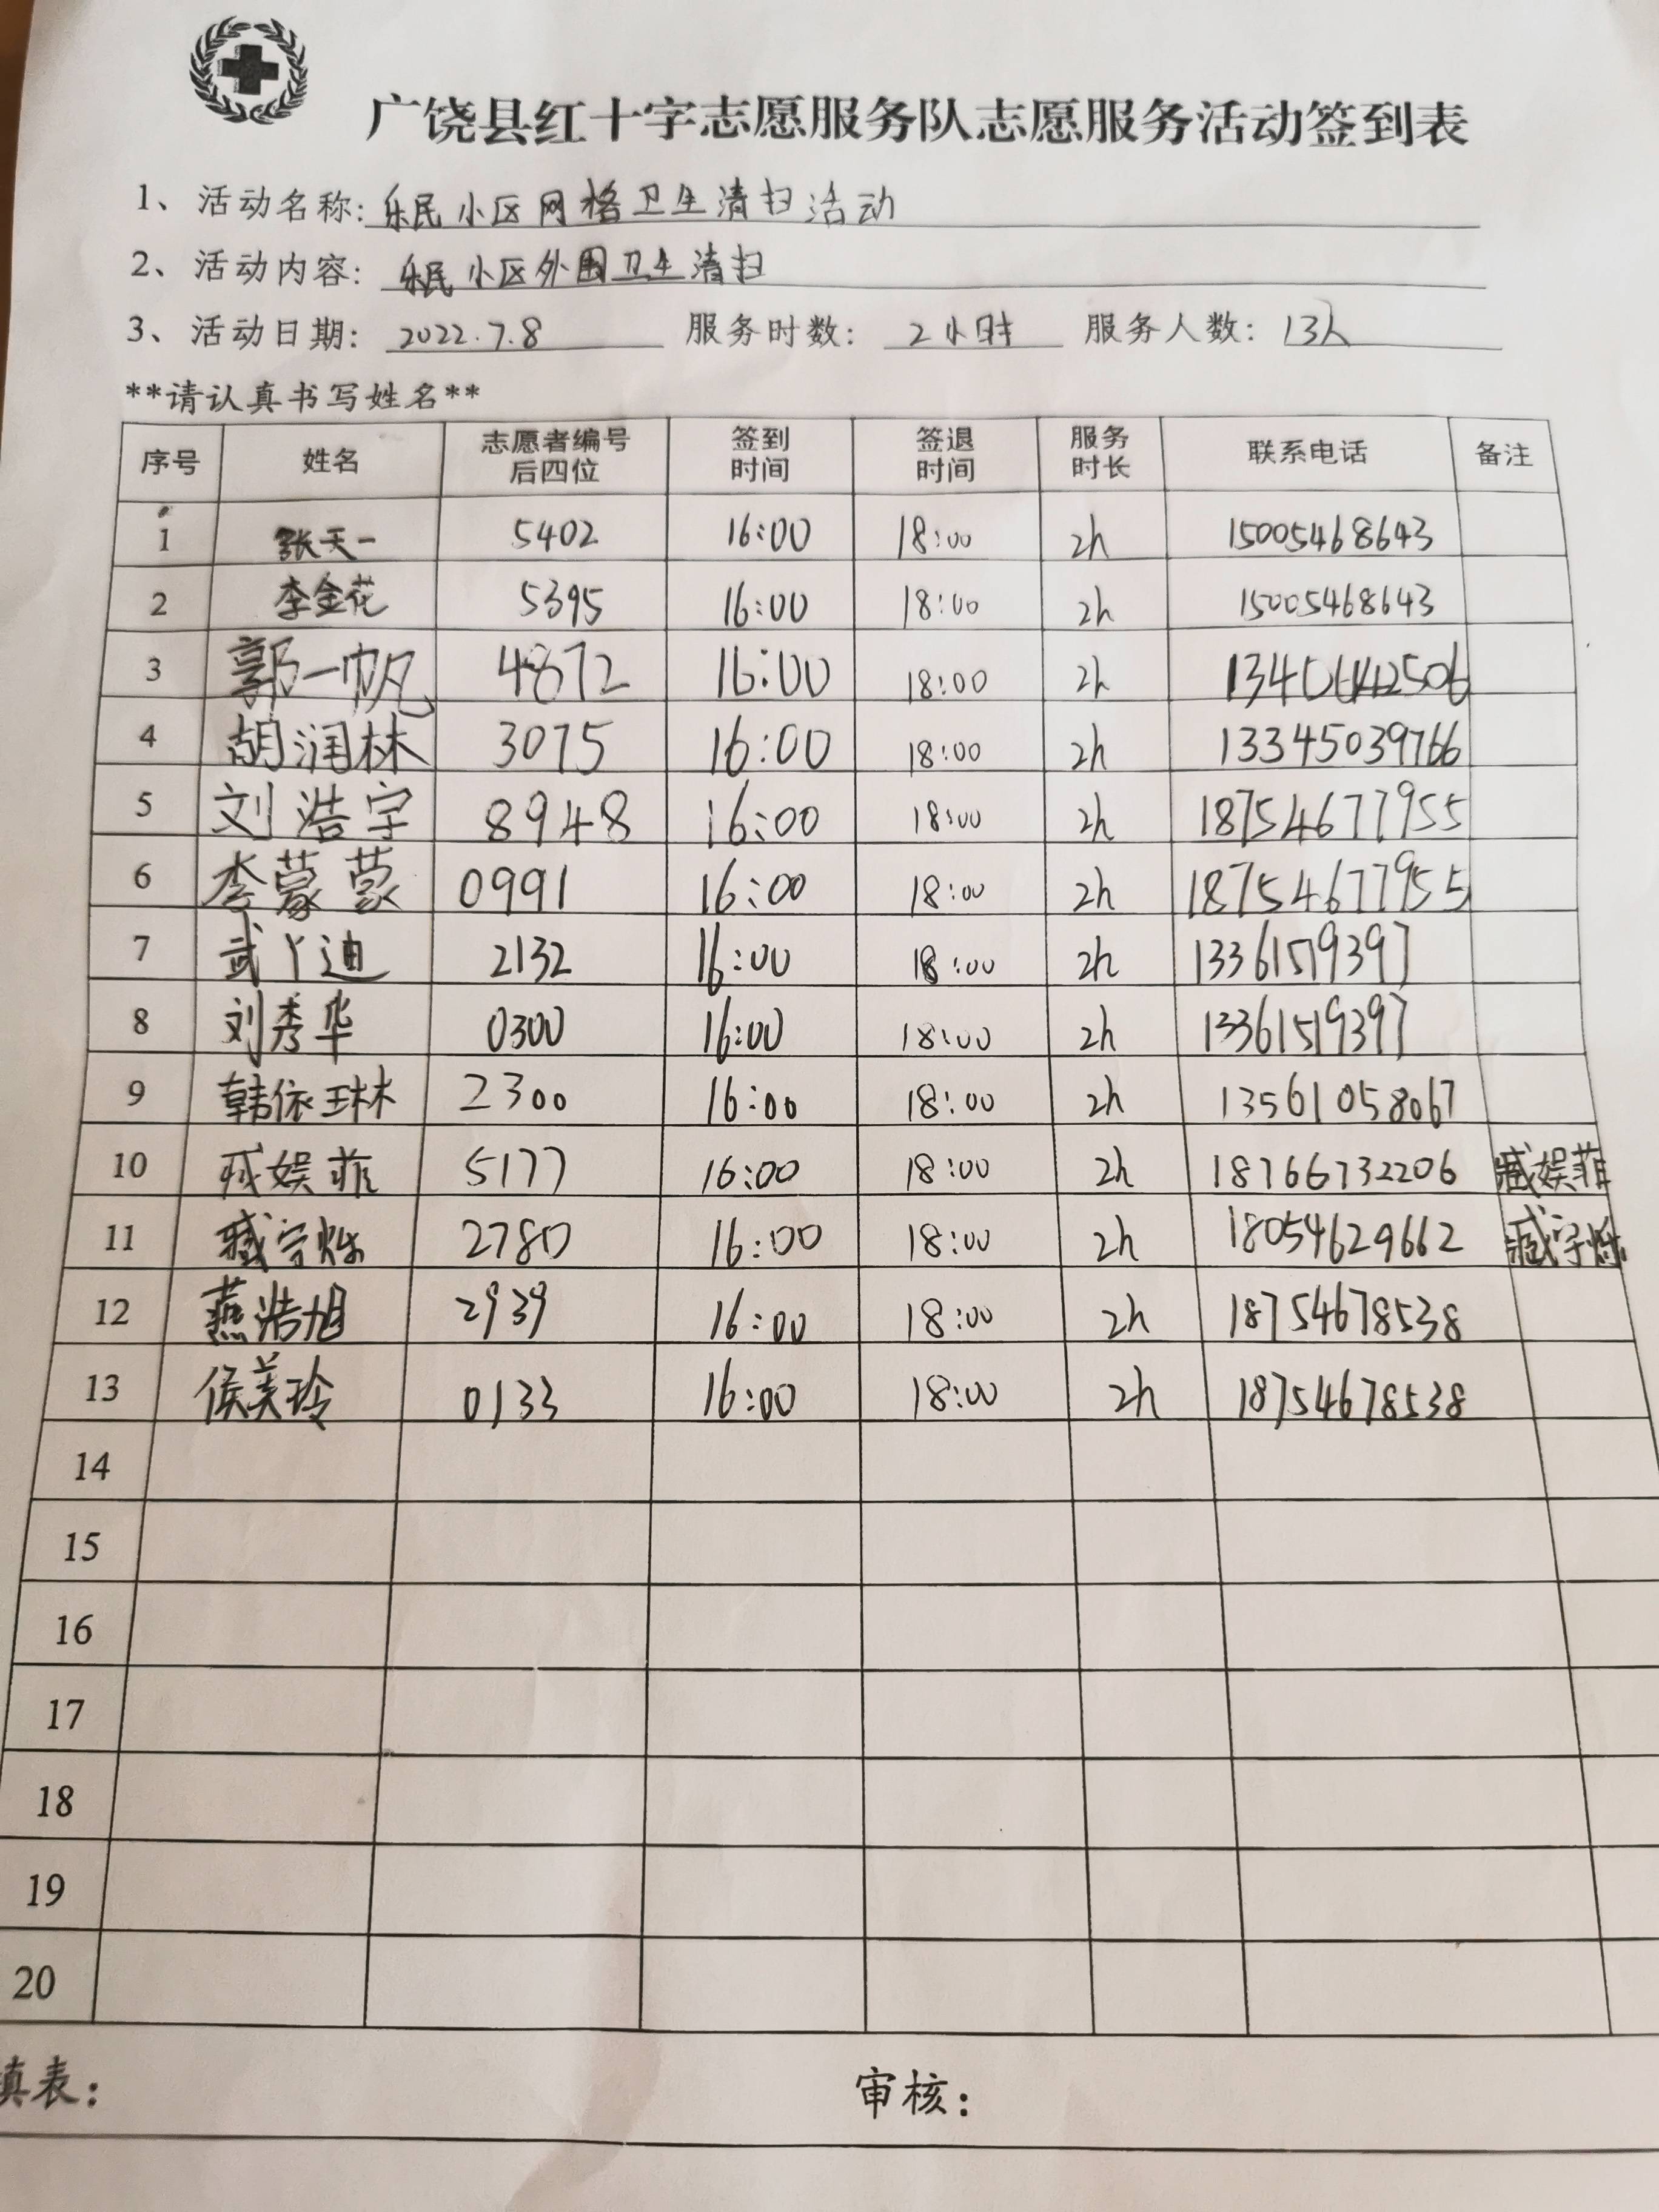 广饶县红十字志愿服务队志愿服务活动签到表
1、活动名称: 乐民小区网格卫生清扫活动
2、活动内容: 乐民小区外围卫生清扫
3、活动日期: 2022.7.8 服务时数: 2小时 服务人数: 13人
**请认真书写姓名**
序号 姓名 志愿者编号后四位 签到时间 签退时间 服务时长 联系电话 备注
1 张天一 5402 16:00 18:00 2h 15005468643
2 李金花 5395 16:00 18:00 2h 15005468643
3 郭一帆 4872 16:00 18:00 2h
4 胡润林 3075 16:00 18:00 2h 13345039766
5 刘浩宇 8948 16:00 18:00 2h 18754677955
6 李蒙蒙 0991 16:00 18:00 2h 18754677955
7 武丫迪 2132 16:00 18:00 2h 13361519397
8 刘秀华 0300 16:00 18:00 2h 13361519397
9 韩依琳 2300 16:00 18:00 2h 13561058067
10 臧娱菲 5177 16:00 18:00 2h 18766732206 臧娱菲
11 臧宇烁 2780 16:00 18:00 2h 18054629662 臧宇烁
12 燕浩旭 2939 16:00 18:00 2h 18754678538
13 侯美玲 0133 16:00 18:00 2h 18754678538
14
15
16
17
18
19
20
填表: 审核: